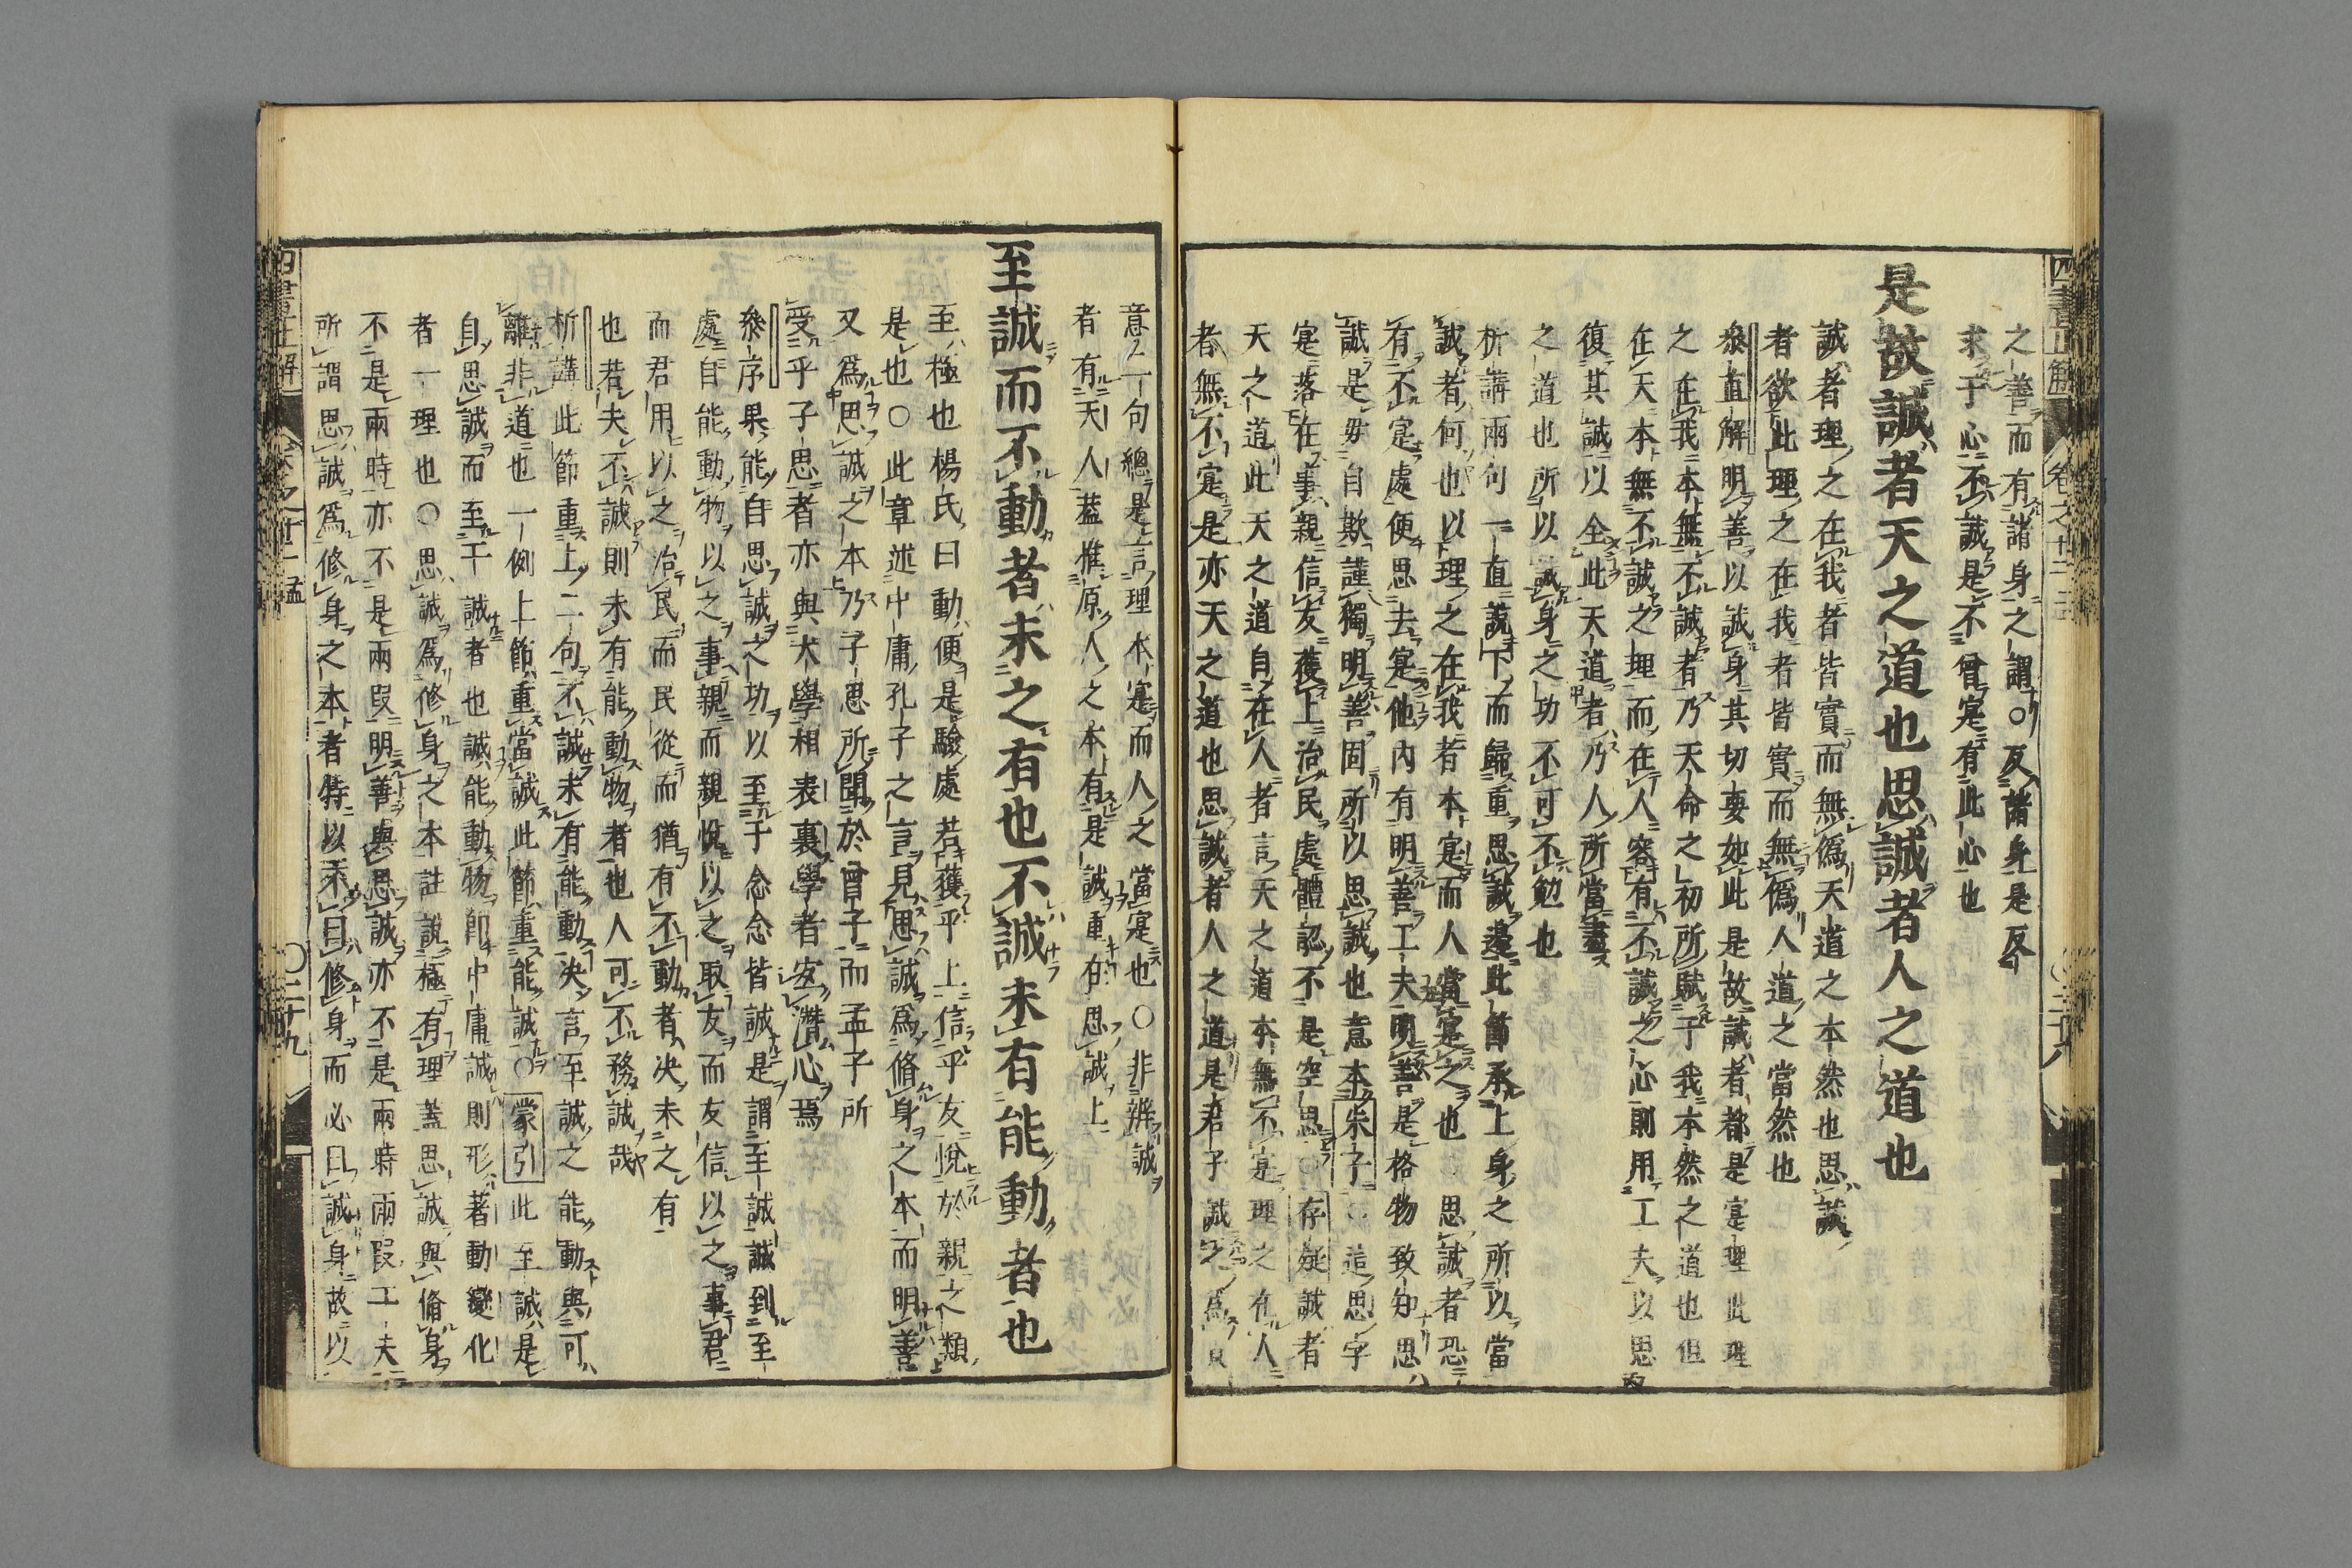 之善而有諸身之謂○反諸身是反
求于心不誠是不曾寔有此心也
是故誠者天之道也思誠者人之道也
誠者理之在我者皆實而無僞天道之本然也思誠
者欲此理之在我者皆實而無僞人道之當然也
叅直解明善以誠身其切要如此是故誠者都是寔理此理
之在我本無不誠者乃天命之初所賦于我本然之道也但
在天本無不誠之理而在人容有不誠之心則用工夫以思
復其誠以全此天道者乃人所當盡
之道也所以誠身之功不可不勉也
析講兩句一直說下而歸重思誠邊此節承上身之所以當
誠者何也以理之在我者本寔而人當寔之也思誠者恐
有不寔處便思去寔他內有明善工夫明善是格物致知思
誠是毋自欺謹獨明善固所以思誠也意本朱子○這思字
寔落在事親信友獲上治民處體認不是空思○存疑誠者
天之道此天之道自在人者言天之道本無不寔理之在人
者無不寔是亦天之道也思誠者人之道是君子誠之爲貴
意二句總是言理本寔而人之當寔也○非辨誠
者有天人蓋惟原人之本有是誠重在思誠上
至誠而不動者未之有也不誠未有能動者也
至極也楊氏曰動便是驗處若獲乎上信乎友悅於親之類
是也○此章述中庸孔子之言見思誠爲脩身之本而明善
又爲思誠之本乃子思所聞於曾子而孟子所
受乎子思者亦與大學相表裏學者宜潛心焉
叅序果能自思誠之功以至于念念皆誠是謂至誠誠到至
處自能動物以之事親而親悅以之取友而友信以之事君
而君用以之治民而民從而猶有不動者决未之有
也若夫不誠則未有能動物者也人可不務誠哉
析講此節重上二句不誠未有能動决言至誠之能動與可
離非道也一例上節重當誠此節重能誠○蒙引此至誠是
自思誠而至于誠者也誠能動物卽中庸誠則形著動變化
者一理也○思誠爲修身之本註說極有理蓋思誠與脩身
不是兩時亦不是兩叚明善與思誠亦不是兩時兩叚工夫
所謂思誠爲修身之本者特以不曰修身而必曰誠身故以